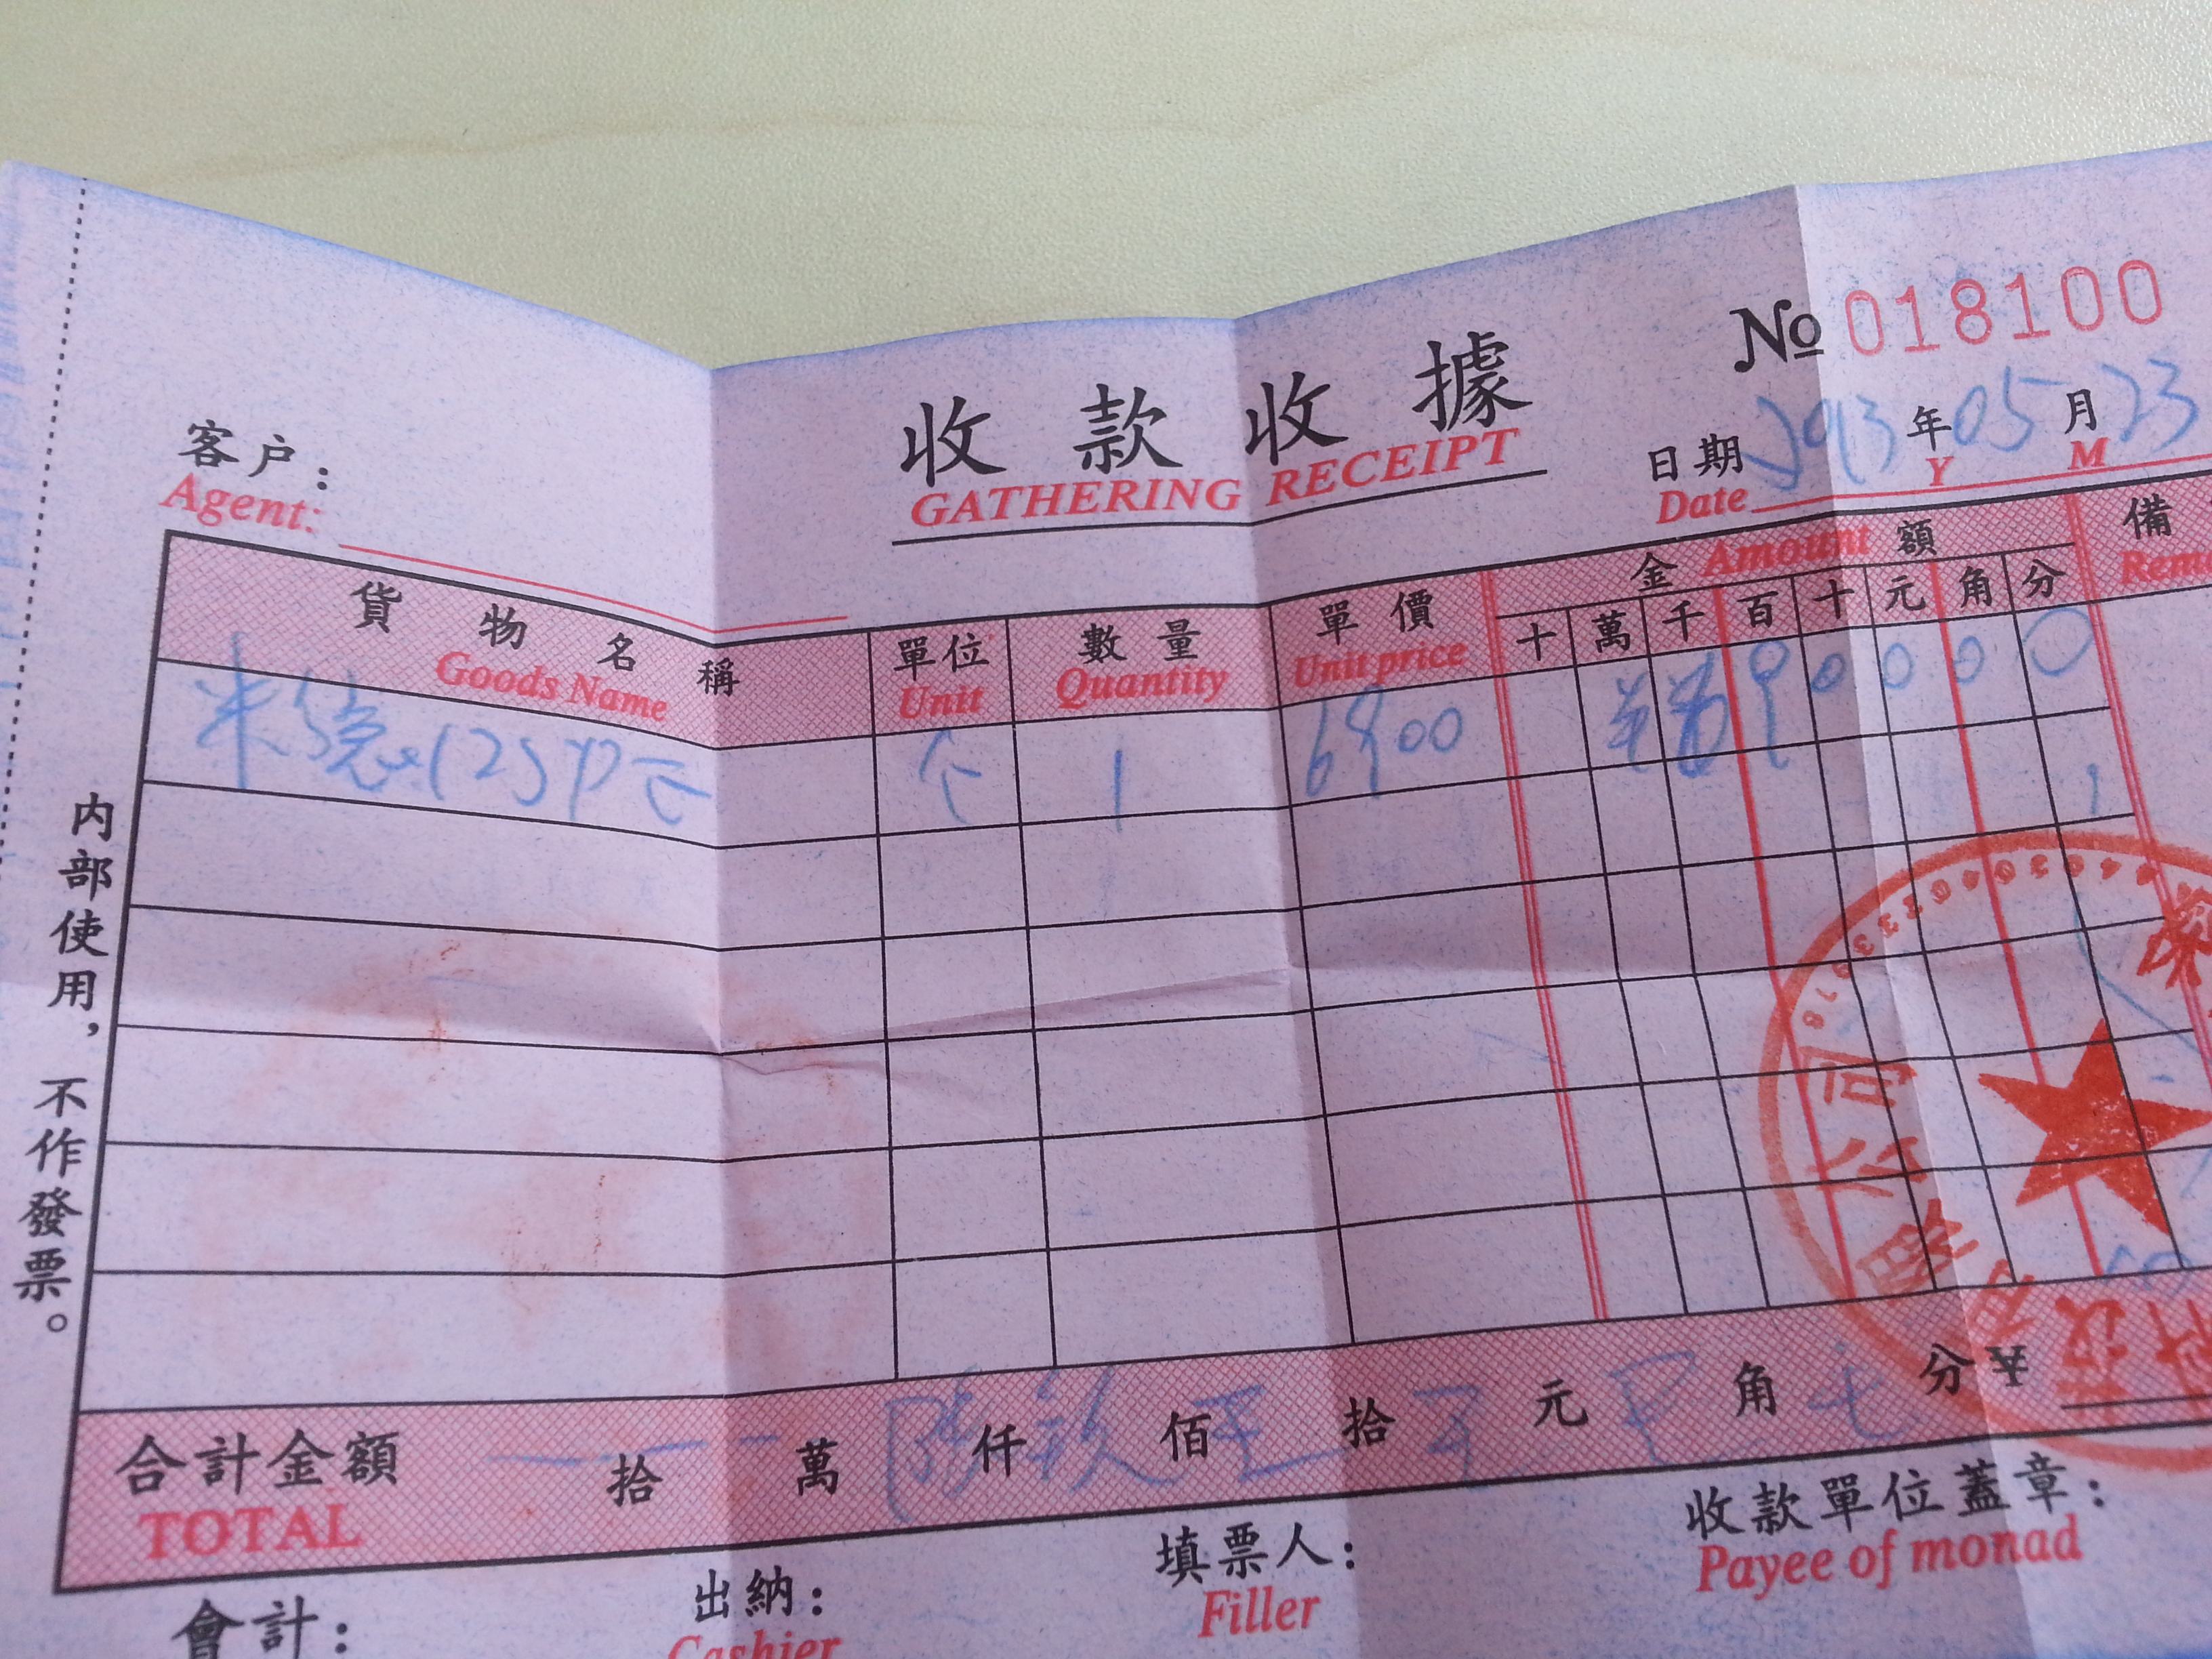 № 018100
收款收據
GATHERING RECEIPT
日期 2013 年 05 月 23
Date Y M
客户：
Agent:
貨物名稱 單位 數量 單價 金額 備
Goods Name Unit Quantity Unit price Amount Rem
十 萬 千 百 十 元 角 分
125 个 1 6900 9 0 0 0 0
内部使用，不作發票。
合計金額 拾 萬 陆 仟 玖 佰 拾 元 角 分 ¥
TOTAL
會計： 出納： 填票人： 收款單位蓋章：
Cashier Filler Payee of monad